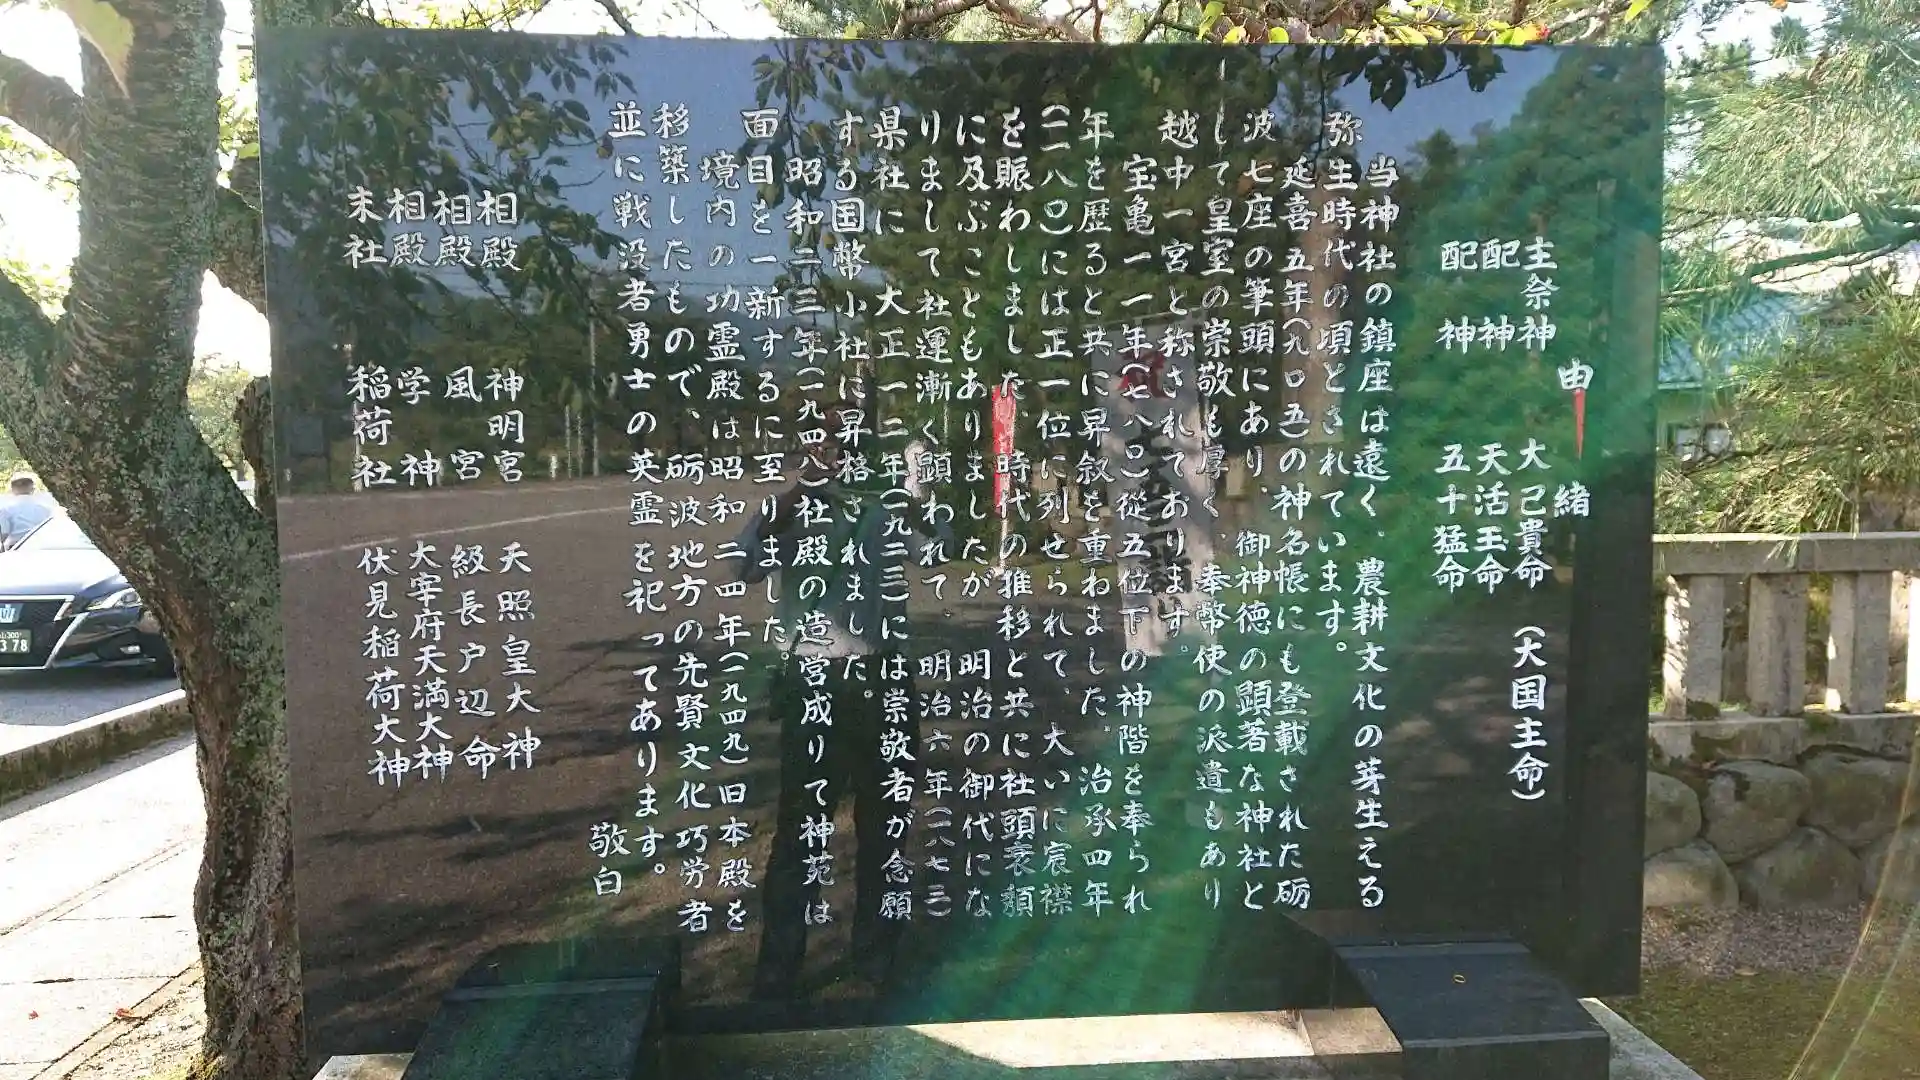 由緒
主祭神 大己貴命（大国主命）
配神 天活玉命
配神 五十猛命
当神社の鎮座は遠く、農耕文化の芽生える
弥生時代の頃とされています。
延喜五年（九〇五）の神名帳にも登載された砺
波七座の筆頭にあり、御神徳の顕著な神社と
して皇室の崇敬も厚く、奉幣使の派遣もあり
越中一宮と称されております。
宝亀一一年（七八〇）從五位下の神階を奉られ
年を歴ると共に昇叙を重ねました。治承四年
（一一八〇）には正一位に列せられて、大いに宸襟
を賑わしました、時代の推移と共に社頭衰頽
に及ぶこともありましたが 明治の御代にな
りまして社運漸く顕われて、明治六年（一八七三）
県社に 大正一二年（一九二三）には崇敬者が念願
する国幣小社に昇格されました。
昭和二三年（一九四八）社殿の造営成りて神苑は
面目を一新するに至りました。
境内の功霊殿は昭和二四年（一九四九）旧本殿を
移築したもので、砺波地方の先賢文化巧労者
並に戦没者勇士の英霊を祀ってあります。
敬白
相殿 神明宮 天照皇大神
相殿 風宮 級長戸辺命
相殿 学神 大宰府天満大神
末社 稲荷社 伏見稲荷大神
378